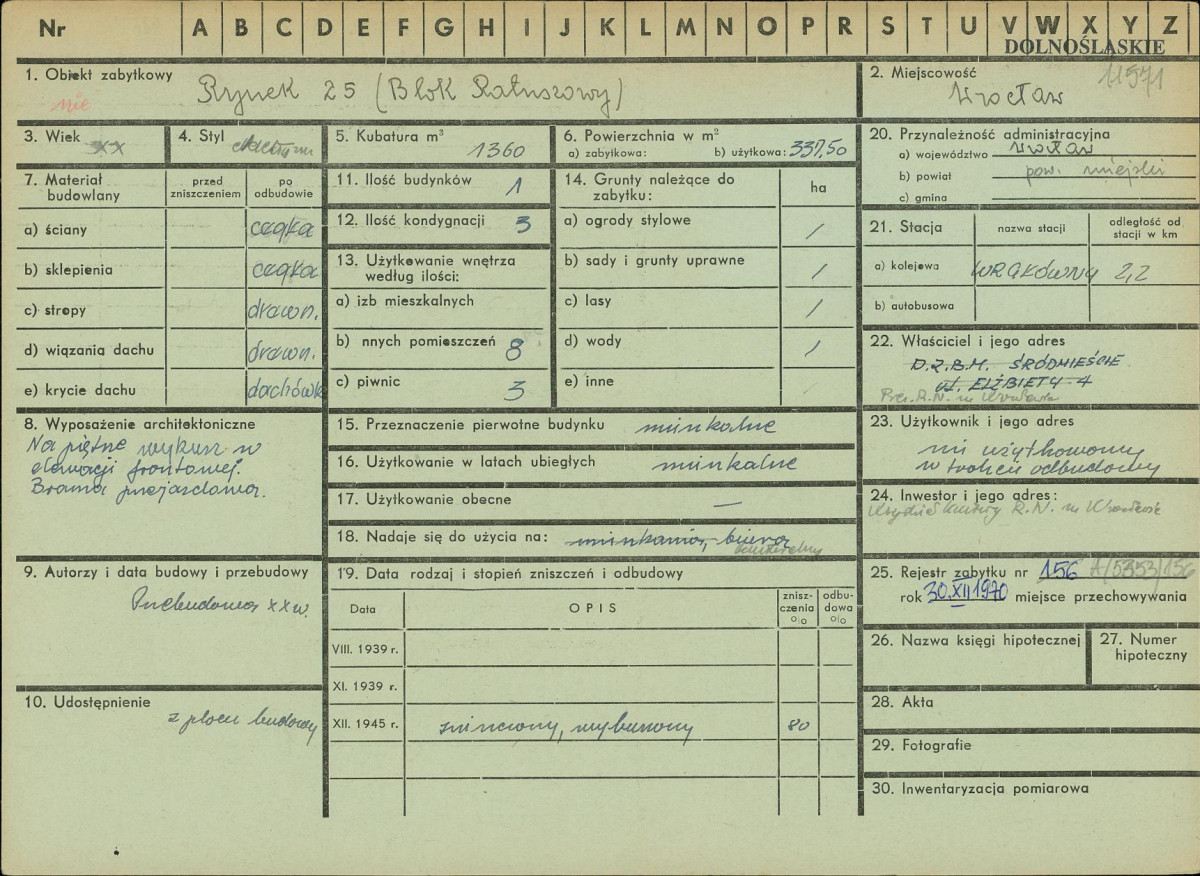 Nr A B C D E F G H I J K L M N O P R S T U V W X Y Z
DOLNOŚLĄSKIE
11571
1. Obiekt zabytkowy Rynek 25 (Blok Ratuszowy)
nie
2. Miejscowość Wrocław
3. Wiek XX
4. Styl
5. Kubatura m³ 1360
6. Powierzchnia w m²
a) zabytkowa: b) użytkowa: 337,50
7. Materiał budowlany
przed zniszczeniem
po odbudowie
a) ściany cegła
b) sklepienia cegła
c) stropy drewn.
d) wiązania dachu drewn.
e) krycie dachu dachówk
8. Wyposażenie architektoniczne
Na piętrze wykusz w
elewacji frontowej.
Brama przejazdowa.
9. Autorzy i data budowy i przebudowy
Przebudowa XX w.
10. Udostępnienie
z placu budowy
11. Ilość budynków 1
12. Ilość kondygnacji 3
13. Użytkowanie wnętrza
według ilości:
a) izb mieszkalnych
b) nnych pomieszczeń 8
c) piwnic 3
14. Grunty należące do
zabytku:
ha
a) ogrody stylowe /
b) sady i grunty uprawne /
c) lasy /
d) wody /
e) inne
15. Przeznaczenie pierwotne budynku mieszkalne
16. Użytkowanie w latach ubiegłych mieszkalne
17. Użytkowanie obecne —
18. Nadaje się do użycia na: mieszkania, biura
19. Data rodzaj i stopień zniszczeń i odbudowy
Data OPIS znisz-czenia % odbu-dowa %
VIII. 1939 r.
XI. 1939 r.
XII. 1945 r. zniszczony, wyburzony 80
20. Przynależność administracyjna
a) województwo Wrocław
b) powiat pow. miejski
c) gmina
21. Stacja
nazwa stacji
odległość od stacji w km
a) kolejowa WR GŁÓWNY 2,2
b) autobusowa
22. Właściciel i jego adres
D.Z.B.M. ŚRÓDMIEŚCIE
ul. ELŻBIETY 4
Prez. R.N. m Wrocławia
23. Użytkownik i jego adres
nie użytkowany
w trakcie odbudowy
24. Inwestor i jego adres:
Wydział Kultury R.N. m Wrocławia
25. Rejestr zabytku nr 156 A/5353/156
rok 30.XII 1970 miejsce przechowywania
26. Nazwa księgi hipotecznej
27. Numer
hipoteczny
28. Akta
29. Fotografie
30. Inwentaryzacja pomiarowa